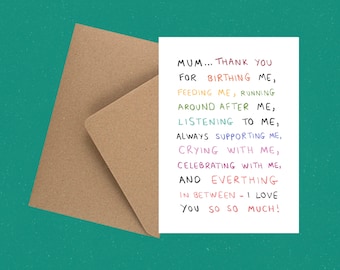 MUM... THANK YOU
FOR BIRTHING ME,
FEEDING ME, RUNNING
AROUND AFTER ME,
LISTENING TO ME,
ALWAYS SUPPORTING ME,
CRYING WITH ME,
CELEBRATING WITH ME,
AND EVERTHING
IN BETWEEN - I LOVE
YOU SO SO MUCH!